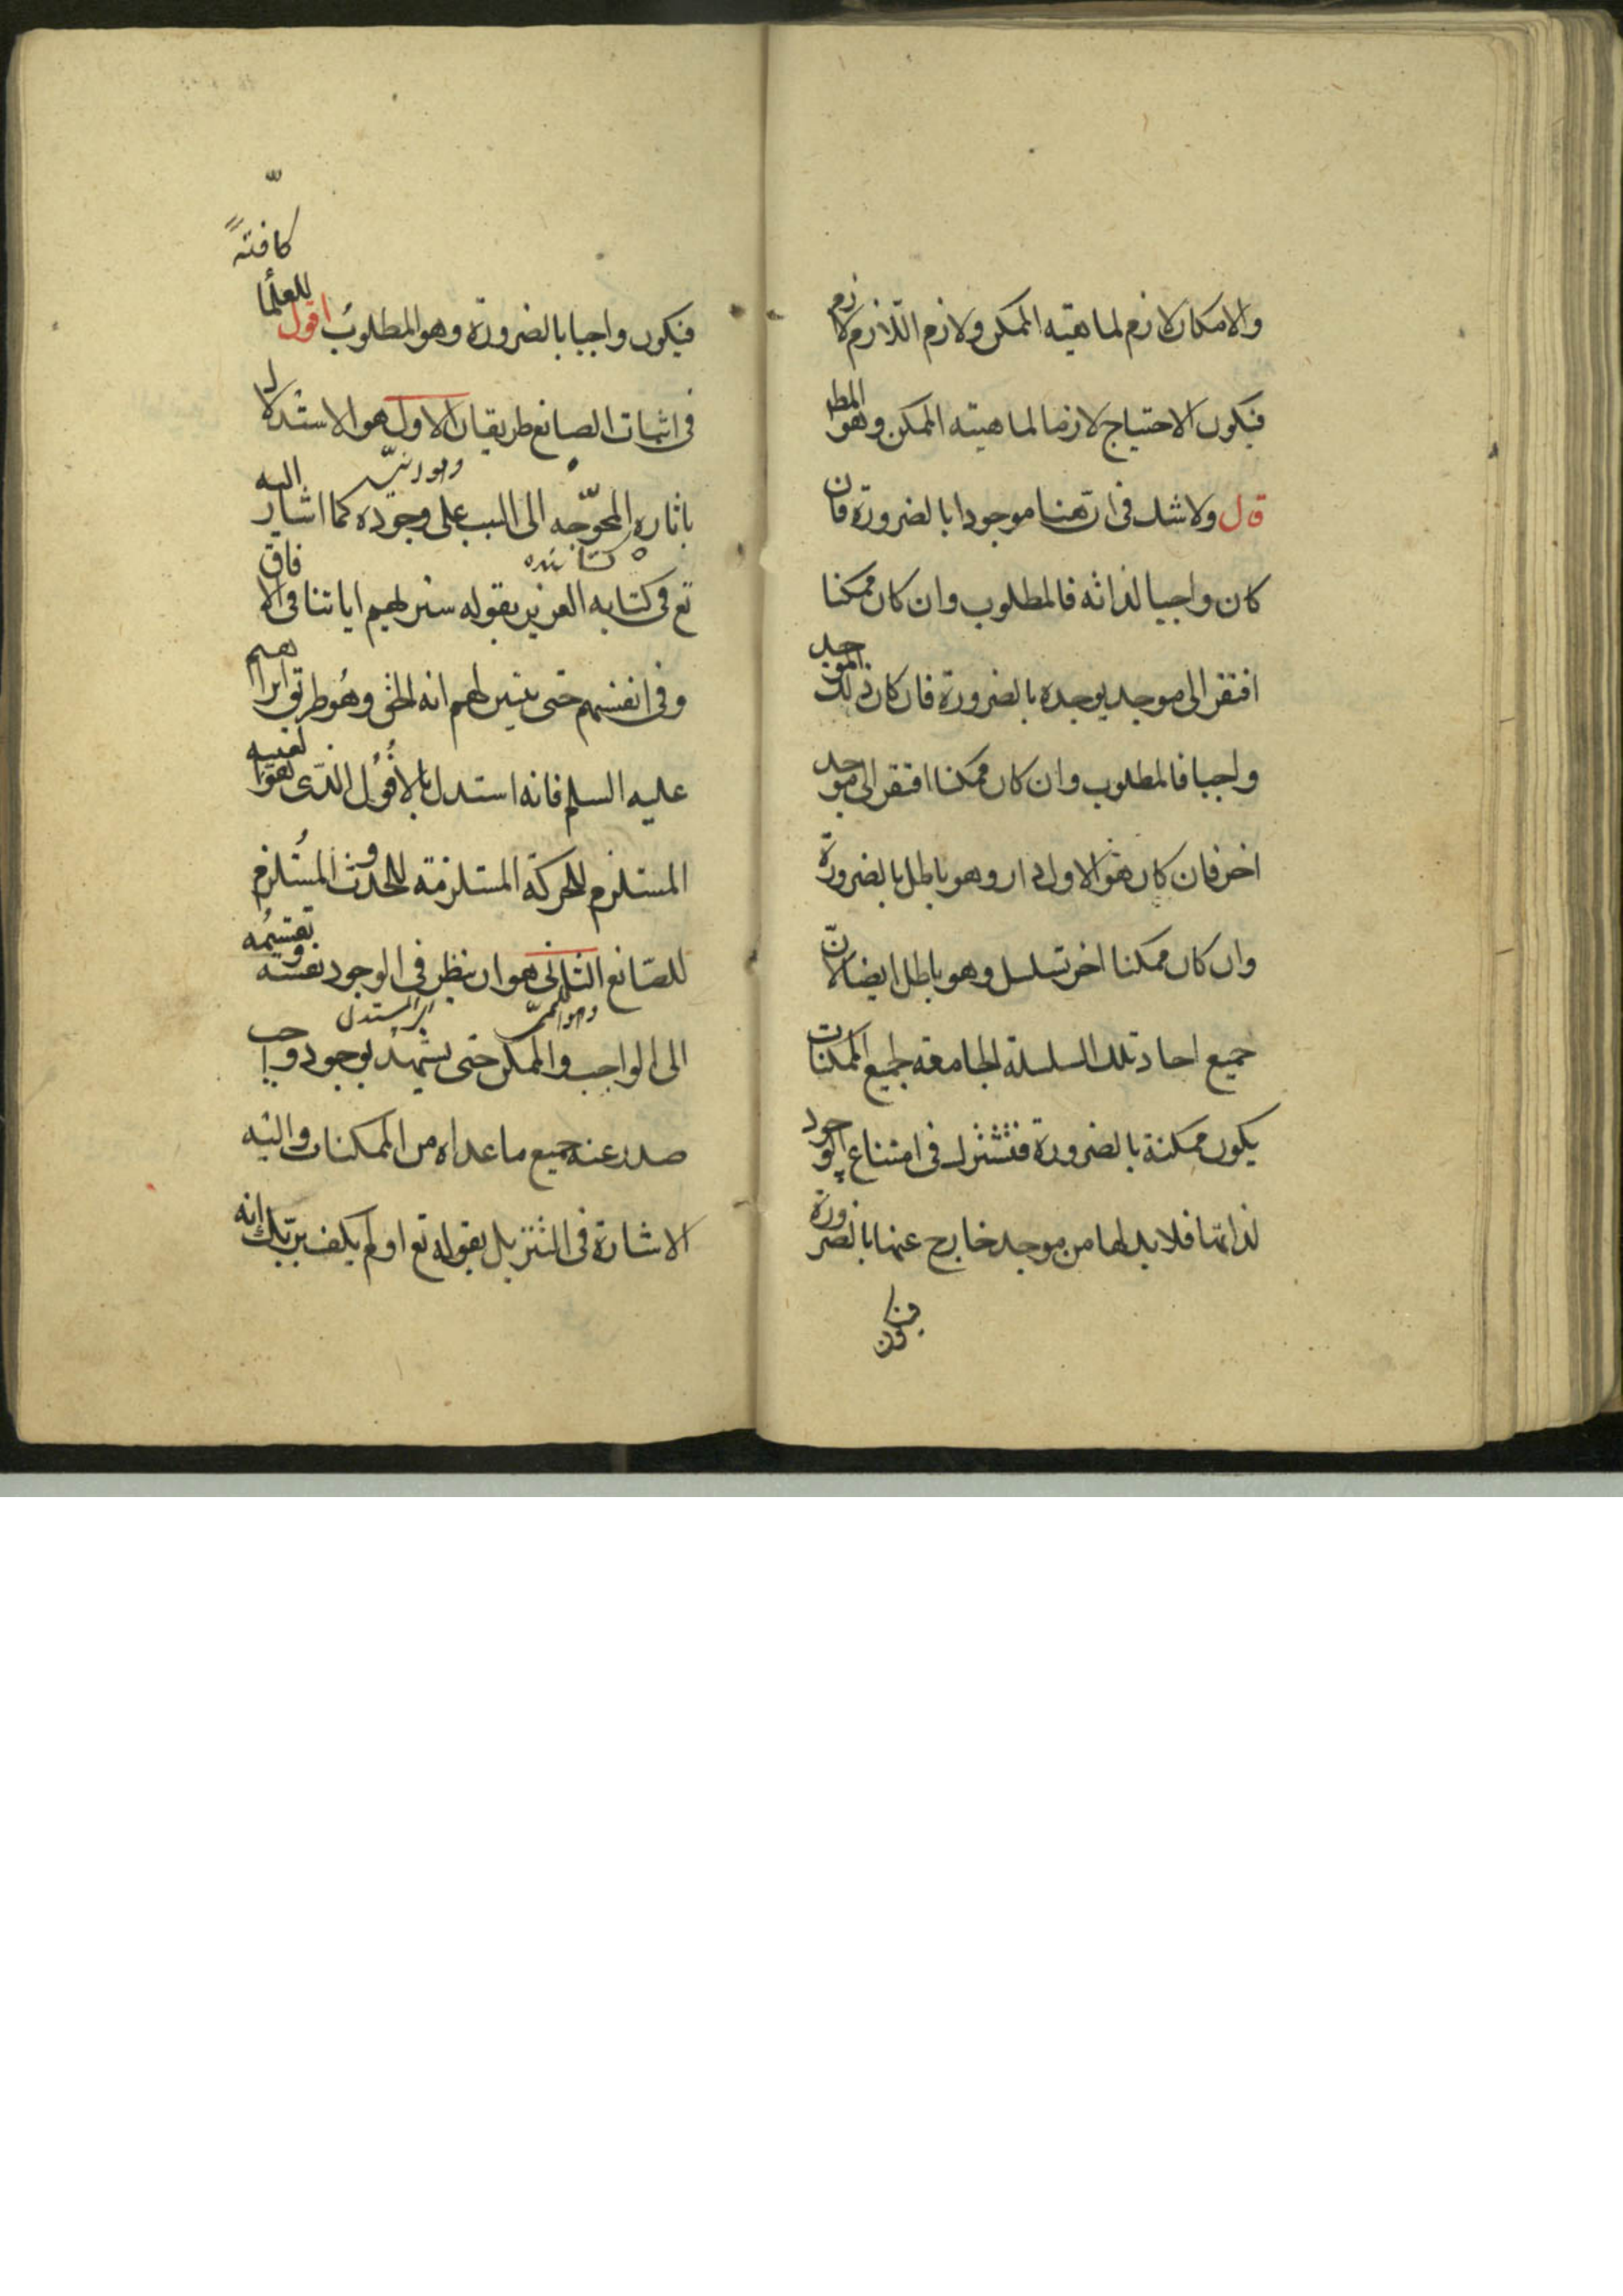 والامكان لازم لماهية الممكن ولازم اللازم لازم
فيكون الاحتياج لازما لماهية الممكن وهو المط
قال ولا شك فى ان هنا موجودا بالضرورة فان
كان واجبا لذاته فالمطلوب وان كان ممكنا
افتقر الى موجد يوجده بالضرورة فان كان ذلك الموجد
واجبا فالمطلوب وان كان ممكنا افتقر الى موجد
اخر فان كان هو الاول دار وهو باطل بالضرورة
وان كان ممكنا اخر تسلسل وهو باطل ايضا لان
جميع احاد تلك السلسلة الجامعة لجميع الممكنات
يكون ممكنة بالضرورة فتشترك فى امتناع الوجود
لذاتها فلا بد لها من موجد خارج عنها بالضرورة
فيكون واجبا بالضرورة وهو المطلوب اقول للعلما
كافتہً
فى اثبات الصانع طريقان الاول هو الاستدلال
باثاره المحوجه الى السبب على وجوده كما اشار اليه
تع فى كتابه العزيز بقوله سنريهم اياتنا فى الافاق
وفى انفسهم حتى يتبين لهم انه الحق وهو طريق ابراهيم
عليه السلم فانه استدل بالافول الذى هو الغيبه
المستلزم للحركة المستلزمة للحدوث المستلزم
للصانع الثانى هو ان ينظر فى الوجود نفسه وتقسيمه
الى الواجب والممكن حتى يشهد بوجود واجب
صدر عنه جميع ما عداه من الممكنات واليه
الاشارة فى التنزيل بقوله تع اولم يكف بربك انه